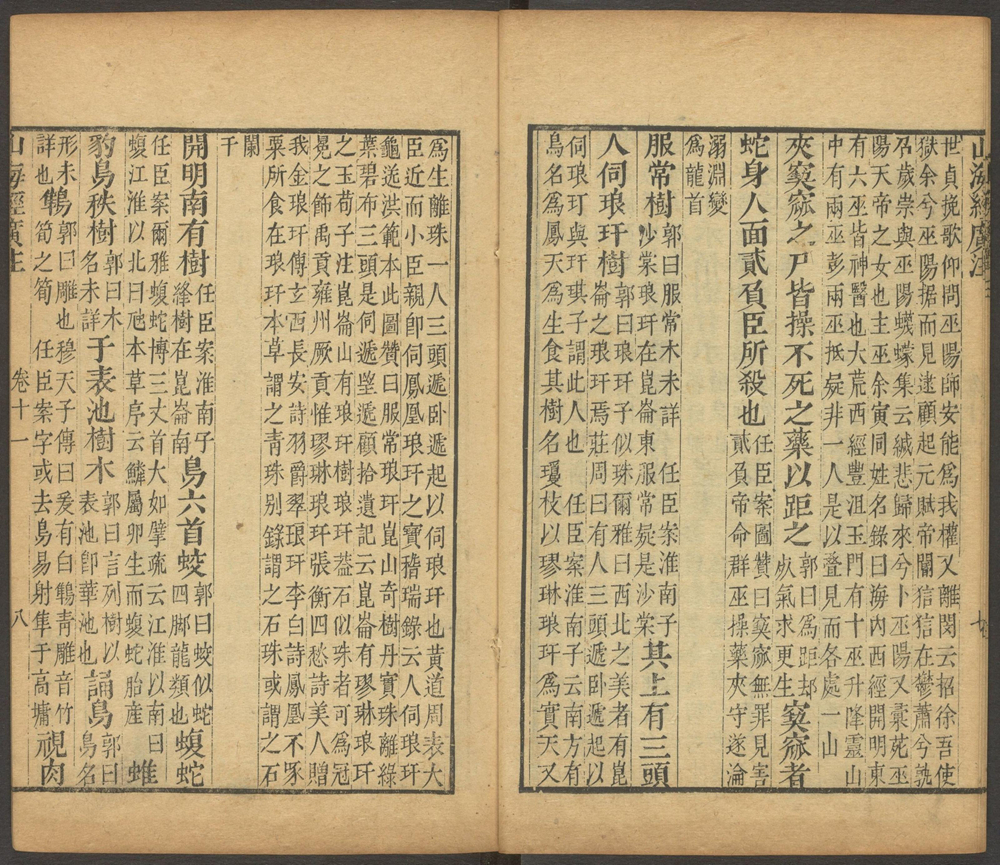 山海經廣注
世貞挽歌仰問巫陽師安能爲我權又離閔云招徐吾使
獄余兮巫陽据而見逑顧起元賦帝閽狺狺在鬱蕭兮孰
歲崇與巫陽蠛蠓集云緘悲歸來兮卜巫陽又彙苑巫
陽天帝之女也主巫余寅同姓名錄曰海內西經開明東
有六巫皆神醫也大荒西經豐沮玉門有十巫升降靈山
中有兩巫彭兩巫抵疑非一人是以登見而各處一山
夾窫窳之尸皆操不死之藥以距之
郭曰爲距却
死氣求更生
窫窳者
蛇身人面貳負臣所殺也
任臣案圖贊曰窫窳無罪見害
貳負帝命群巫操藥夾守遂淪
溺淵變
爲龍首
服常樹
郭曰服常木未詳 任臣案淮南子
沙棠琅玕在崑崙東服常疑是沙棠
其上有三頭
人伺琅玕樹
郭曰琅玕子似珠爾雅曰西北之美者有崑
崙之琅玕焉莊周曰有人三頭遞卧遞起以
伺琅玕與玕琪子謂此人也 任臣案淮南子云南方有
鳥名爲鳳天爲生食其樹名瓊枝以璆琳琅玕爲實天又
爲生離珠一人三頭遞卧遞起以伺琅玕也黃道周表大
臣近而小臣親卽伺鳳凰琅玕之寶稽瑞錄云人伺琅玕
龜送洪範本此圖贊曰服常琅玕崑山奇樹丹實珠離綠
葉碧布三頭是伺遞望遞顧拾遺記云崑崙有璆琳琅玕
之玉荀子注崑崙山有琅玕樹琅玕葢石似珠者可爲冠
冕之飾禹貢雍州厥貢惟璆琳琅玕張衡四愁詩美人贈
我金琅玕傳玄西長安詩羽爵翠琅玕李白詩鳳凰不啄
粟所食在琅玕本草謂之青珠别錄謂之石珠或謂之石
闌
干
開明南有樹
任臣案淮南子
絳樹在崑崙南
鳥六首蛟
郭曰蛟似蛇
四脚龍類也
蝮蛇
任臣案爾雅蝮蛇博三丈首大如擘疏云江淮以南曰
蝮江淮以北曰虺本草序云鱗屬卵生而蝮蛇胎産
蜼
豹鳥秩樹
郭曰木
名未詳
于表池樹木
郭曰言列樹以
表池卽華池也
誦鳥
郭曰
鳥名
形未
詳也
鶽
郭曰雕也穆天子傳曰爰有白鶽青雕音竹
筍之筍 任臣案字或去鳥易射隼于高墉
視肉
山海經廣注
卷十一
八